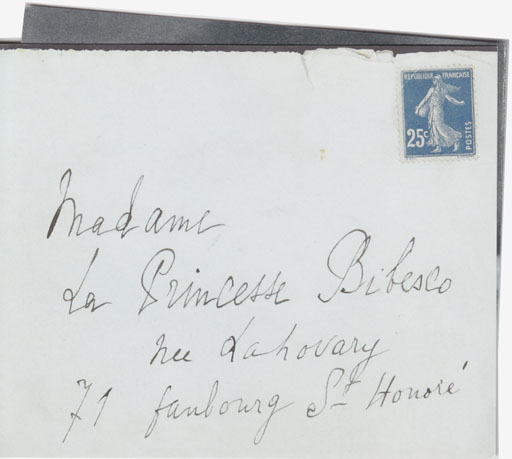 RÉPUBLIQUE FRANÇAISE
25c
POSTES
Madame
La Princesse Bibesco
nee Lahovary
71 faubourg St Honoré